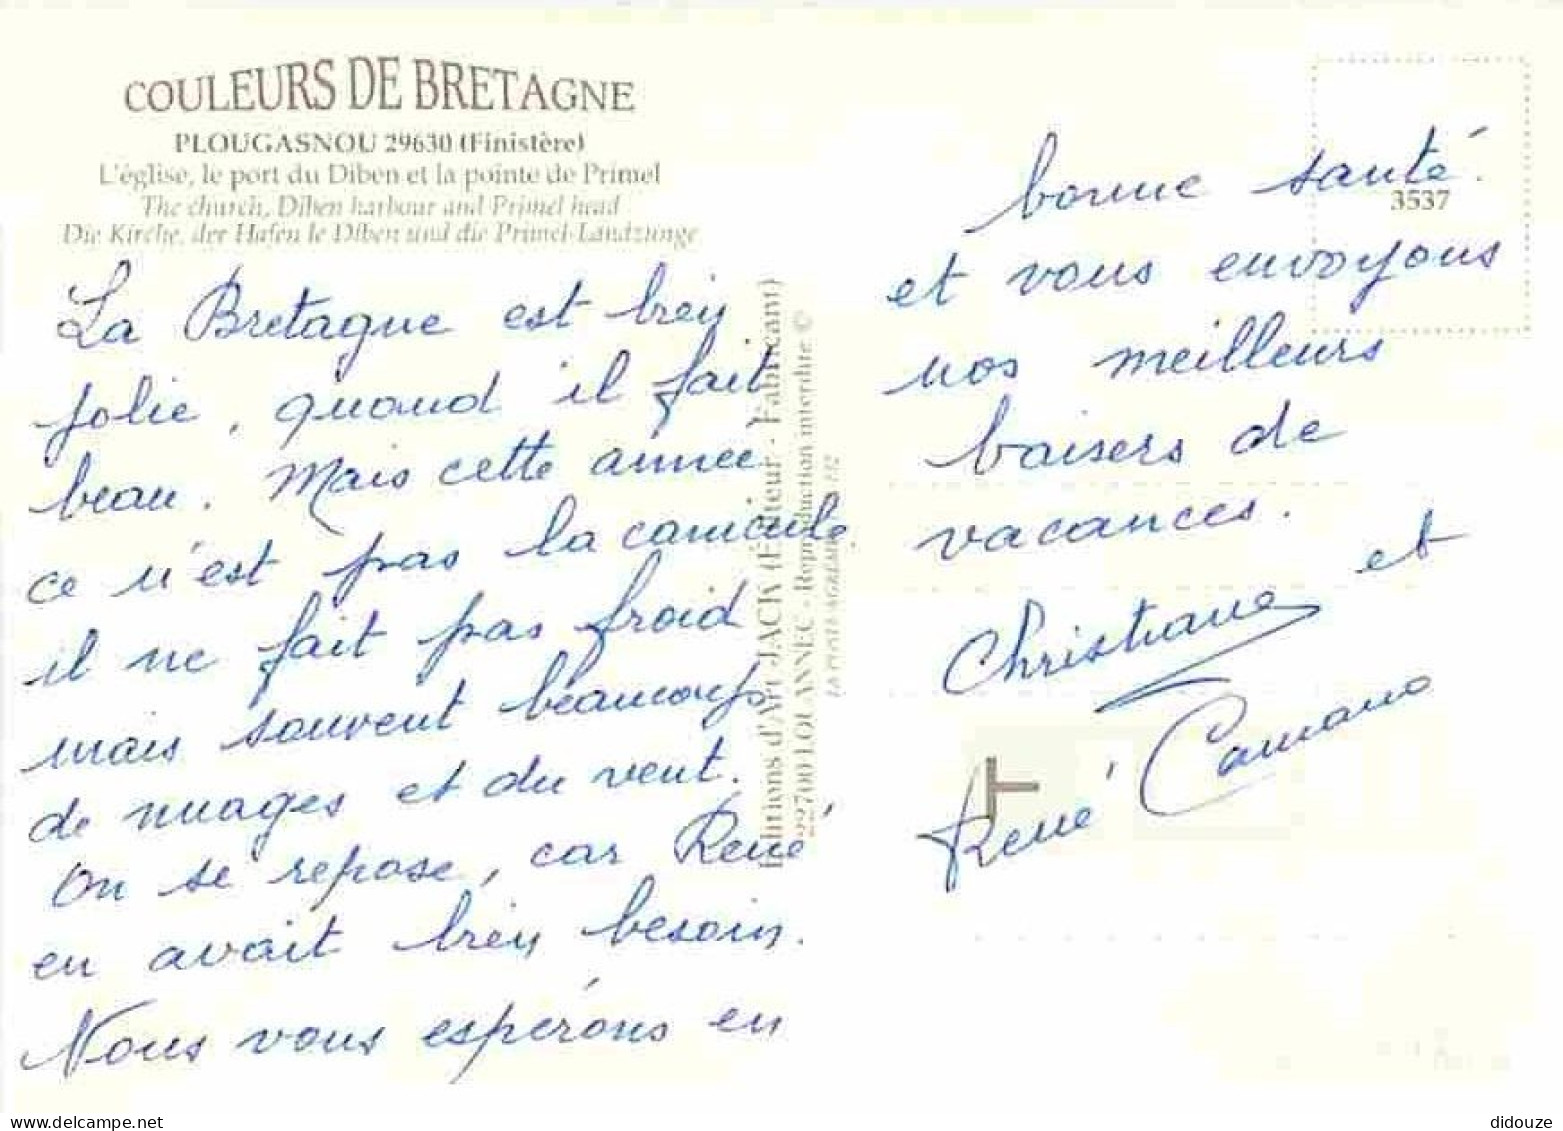 COULEURS DE BRETAGNE
PLOUGASNOU 29630 (Finistère)
L'église, le port du Diben et la pointe de Primel
The church, Diben harbour and Primel head
Die Kirche, der Hafen le Diben und die Primel-Landzunge
La Bretagne est bien
jolie, quand il fait
beau. Mais cette année
ce n'est pas la canicule,
il ne fait pas froid
mais souvent beaucoup
de nuages et du vent.
On se repose, car René
en avait bien besoin.
Nous vous espérons en
Editions d'Art JACK (Editeur - Fabricant)
22700 LOUANNEC - Reproduction interdite ©
3537
bonne santé.
et vous envoyons
nos meilleurs
baisers de
vacances.
Christiane et
René
delcampe.net
didouze